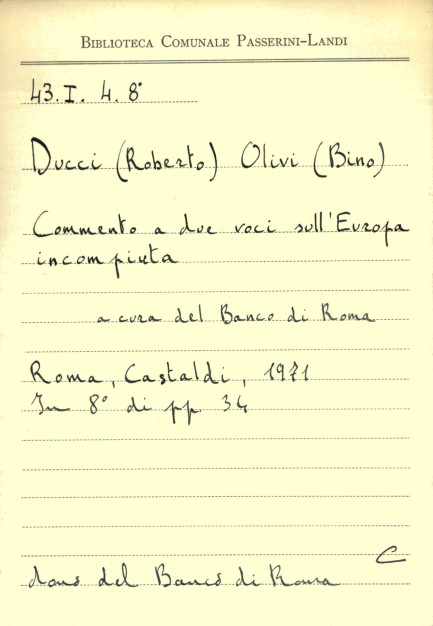 BIBLIOTECA COMUNALE PASSERINI-LANDI
43. I. 4. 8°
Ducci (Roberto) Olivi (Bino)
Commento a due voci sull'Europa
incompiuta
a cura del Banco di Roma
Roma, Castaldi, 1971
In 8° di pp. 34
C
dono del Banco di Roma